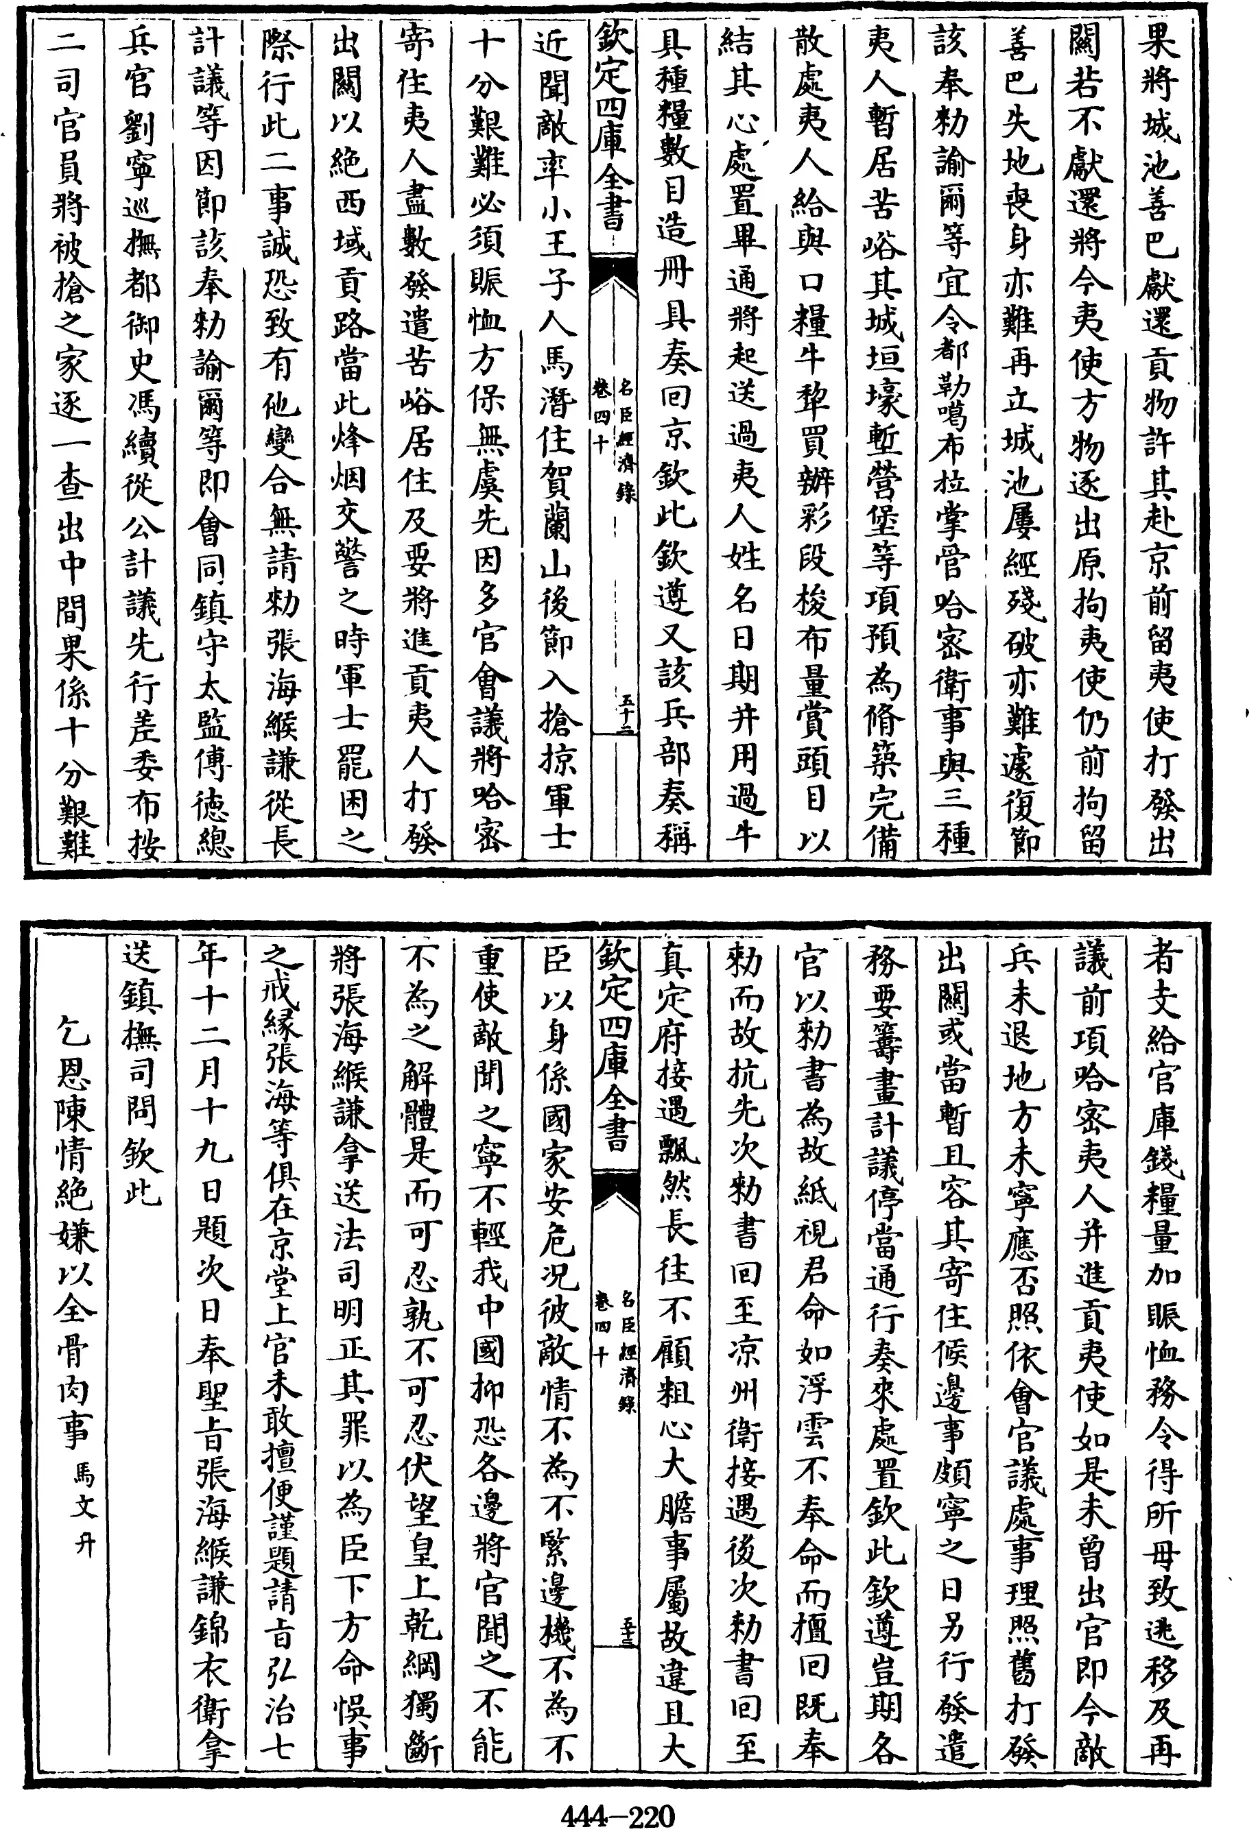 果將城池善巴獻還貢物許其赴京前留夷使打發出
關若不獻還將今夷使方物逐出原拘夷使仍前拘留
善巴失地喪身亦難再立城池屢經殘破亦難遽復節
該奉勅諭爾等宜令都勒噶布拉掌管哈密衛事與三種
夷人暫居苦峪其城垣壕塹營堡等項預為脩築完備
散處夷人給與口糧牛犂買辦彩段梭布量賞頭目以
結其心處置畢通將起送過夷人姓名日期并用過牛
具種糧數目造冊具奏回京欽此欽遵又該兵部奏稱
欽定四庫全書
名臣經濟錄
卷四十
五十二
近聞敵率小王子人馬潛住賀蘭山後節入搶掠軍士
十分艱難必須賑恤方保無虞先因多官會議將哈密
寄住夷人盡數發遣苦峪居住及要將進貢夷人打發
出關以絶西域貢路當此烽烟交警之時軍士罷困之
際行此二事誠恐致有他變合無請勅張海緱謙從長
計議等因節該奉勅諭爾等即會同鎮守太監傅徳總
兵官劉寧巡撫都御史馮續從公計議先行差委布按
二司官員將被搶之家逐一查出中間果係十分艱難
者支給官庫錢糧量加賑恤務令得所毋致逃移及再
議前項哈密夷人并進貢夷使如是未曾出官即今敵
兵未退地方未寧應否照依會官議處事理照舊打發
出關或當暫且容其寄住候邊事頗寧之日另行發遣
務要籌畫計議停當通行奏來處置欽此欽遵豈期各
官以勅書為故紙視君命如浮雲不奉命而擅回既奉
勅而故抗先次勅書回至凉州衛接遇後次勅書回至
真定府接遇飄然長往不顧粗心大膽事屬故違且大
欽定四庫全書
名臣經濟錄
卷四十
五十三
臣以身係國家安危况彼敵情不為不緊邊機不為不
重使敵聞之寧不輕我中國抑恐各邊將官聞之不能
不為之解體是而可忍孰不可忍伏望皇上乾綱獨斷
將張海緱謙拿送法司明正其罪以為臣下方命悞事
之戒緣張海等俱在京堂上官未敢擅便謹題請旨弘治七
年十二月十九日題次日奉聖旨張海緱謙錦衣衛拿
送鎮撫司問欽此
乞恩陳情絶嫌以全骨肉事 馬文升
444-220